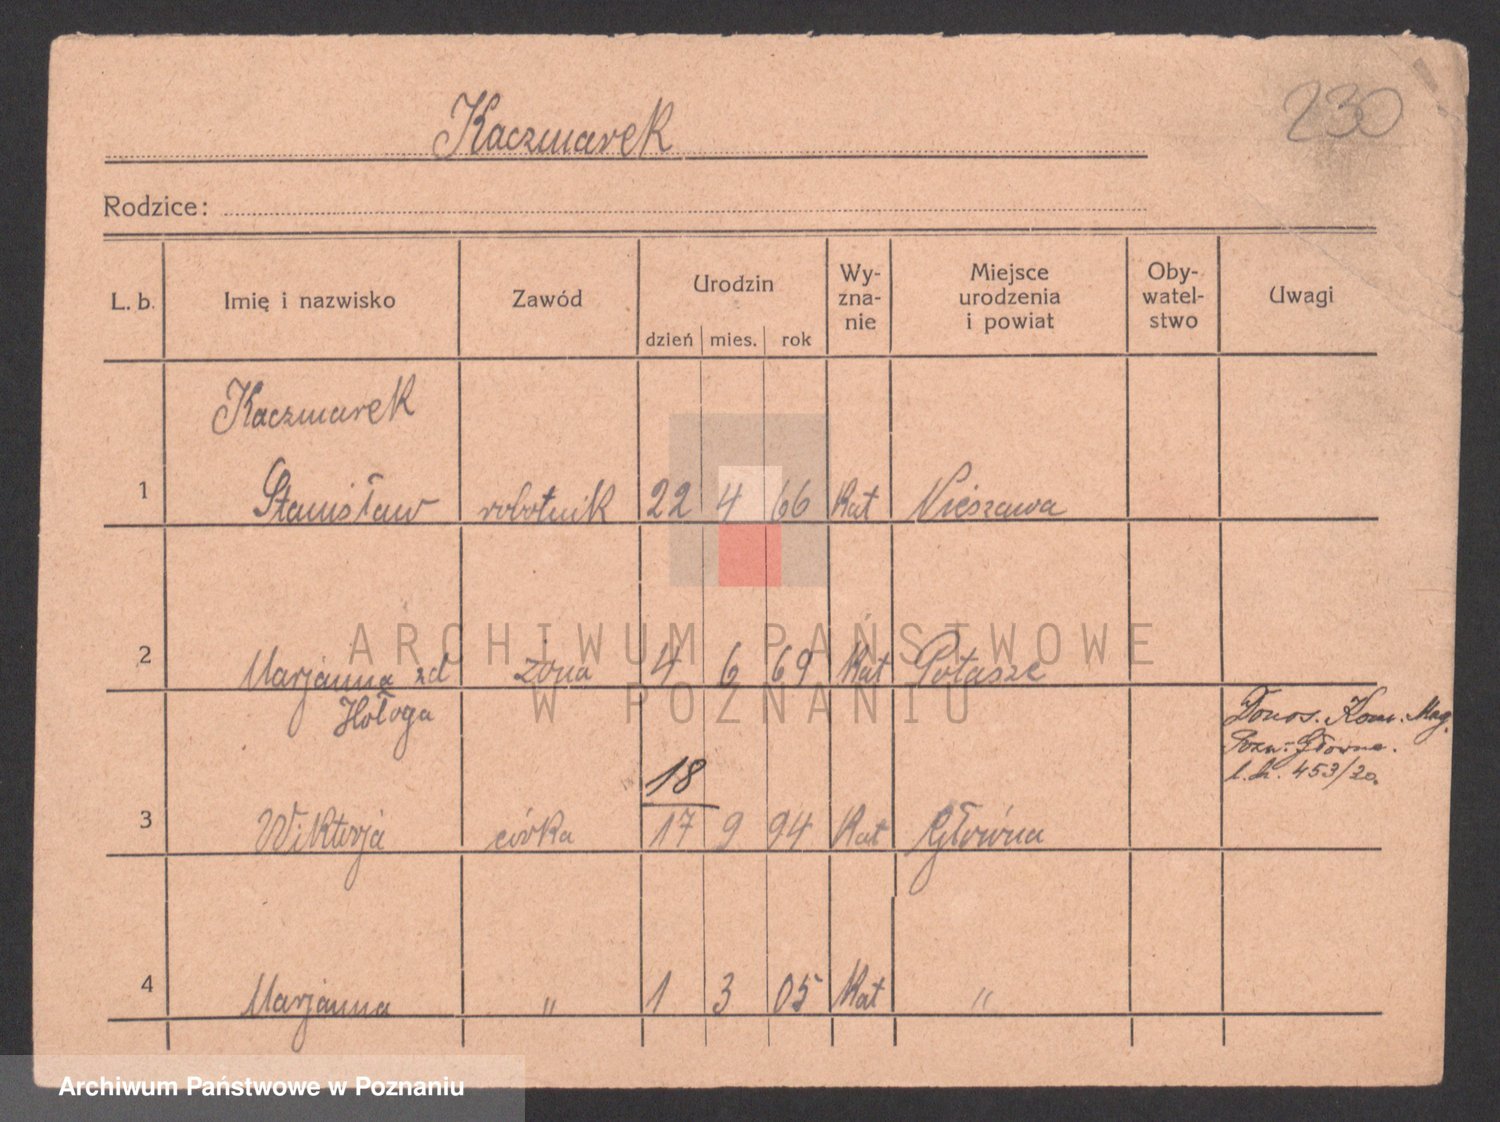 230
Kaczmarek
Rodzice:
L. b. Imię i nazwisko Zawód Urodzin dzień mies. rok Wy-zna-nie Miejsce urodzenia i powiat Oby-watel-stwo Uwagi
Kaczmarek
1 Stanisław robotnik 22 4 66 Kat Nieszawa
ARCHIWUM PAŃSTWOWE
2 Marjanna zd żona 4 6 69 Kat Potasze
W POZNANIU
Hołoga
Donos. Kom. Mag.
Pozn.-Główna.
l. b. 453/20.
18
3 Wiktorja córka 17 9 94 Kat Główna
4 Marjanna " 1 3 05 Kat "
Archiwum Państwowe w Poznaniu